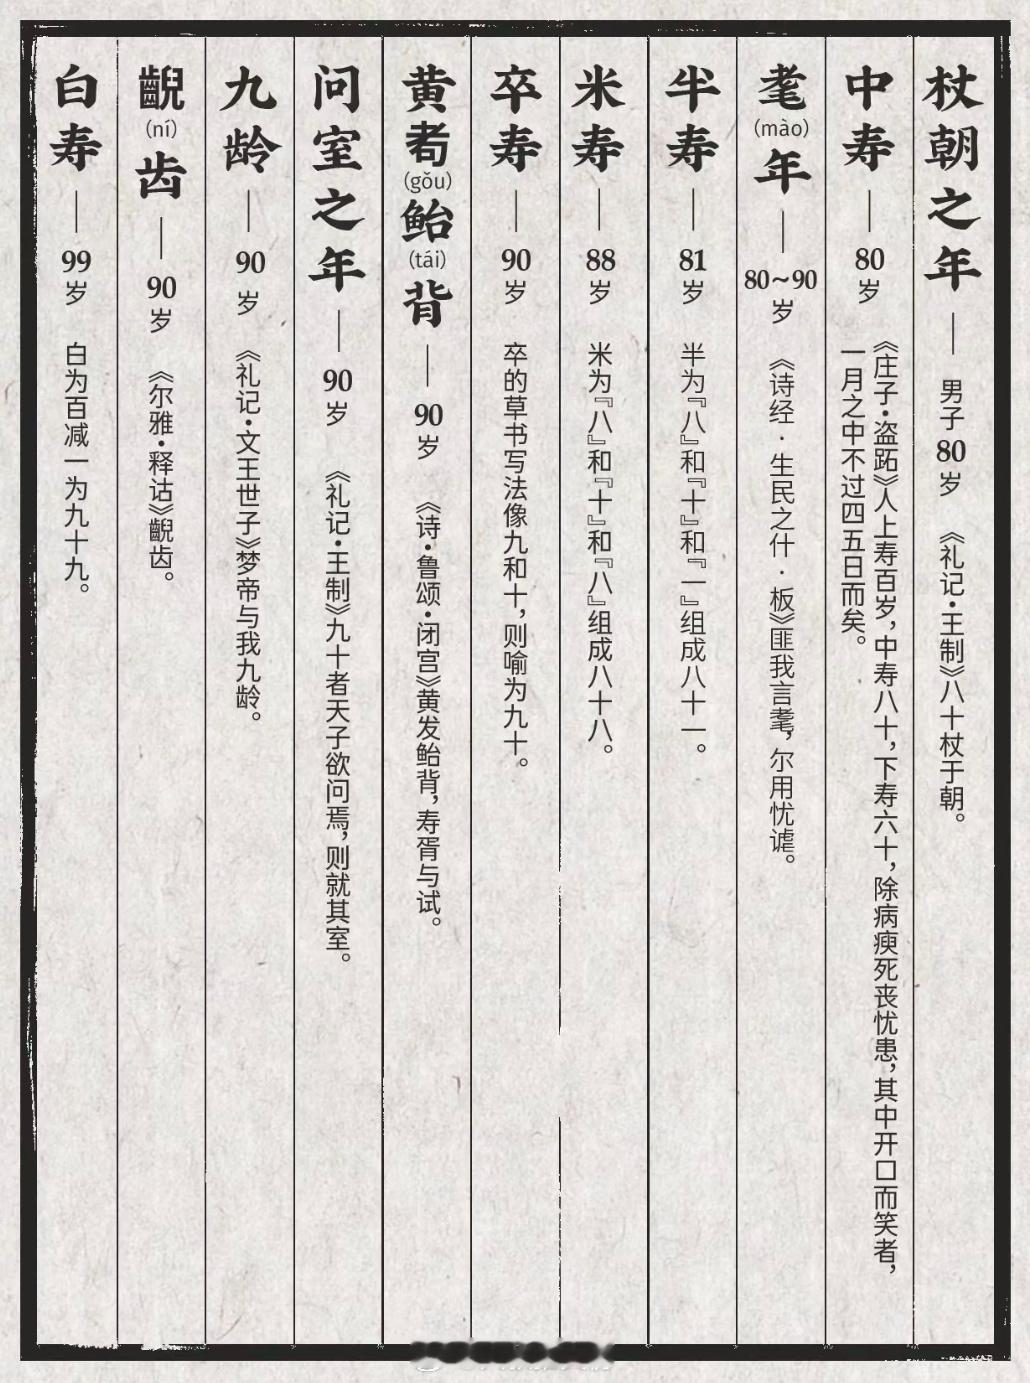 杖朝之年——男子80岁 《礼记·王制》八十杖于朝。
中寿——80岁 《庄子·盗跖》人上寿百岁，中寿八十，下寿六十，除病瘐死丧忧患，其中开口而笑者，
一月之中不过四五日而矣。
耄(mào)年——80~90岁 《诗经·生民之什·板》匪我言耄，尔用忧谑。
半寿——81岁 半为『八』和『十』和『一』组成八十一。
米寿——88岁 米为『八』和『十』和『八』组成八十八。
卒寿——90岁 卒的草书写法像九和十，则喻为九十。
黄耇(gǒu)鲐(tái)背——90岁 《诗·鲁颂·闭宫》黄发鲐背，寿胥与试。
问室之年——90岁 《礼记·王制》九十者天子欲问焉，则就其室。
九龄——90岁 《礼记·文王世子》梦帝与我九龄。
齯(ní)齿——90岁 《尔雅·释诂》齯齿。
白寿——99岁 白为百减一为九十九。